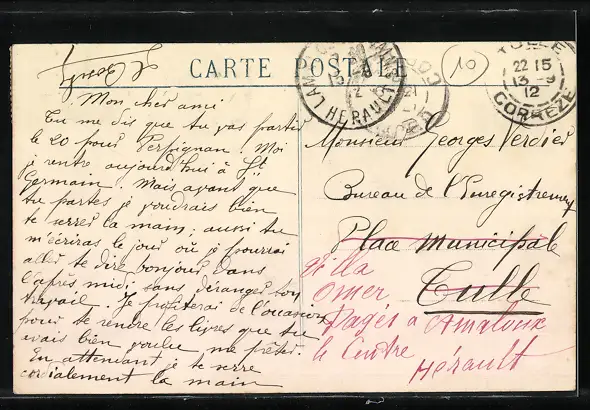 CARTE POSTALE
10
TULLE
22 15
13-9
12
CORREZE
HERAULT
Mon cher ami
Tu me dis que tu vas partir
le 20 pour Perpignan. Moi
je rentre aujourd'hui à St
Germain. Mais avant que
tu partes je voudrais bien
te serrer la main; aussi tu
m'écriras le jour où je pourrai
aller te dire bonjour dans
l'après midi sans déranger ton
travail. Je profiterai de l'occasion
pour te rendre les livres que tu
avais bien voulu me prêter.
En attendant je te serre
cordialement la main
Monsieur Georges Verdier
Bureau de l'Enregistrement
Place Municipale
Tulle
villa
Omer
Pagès à Lamalou
le Centre
Hérault